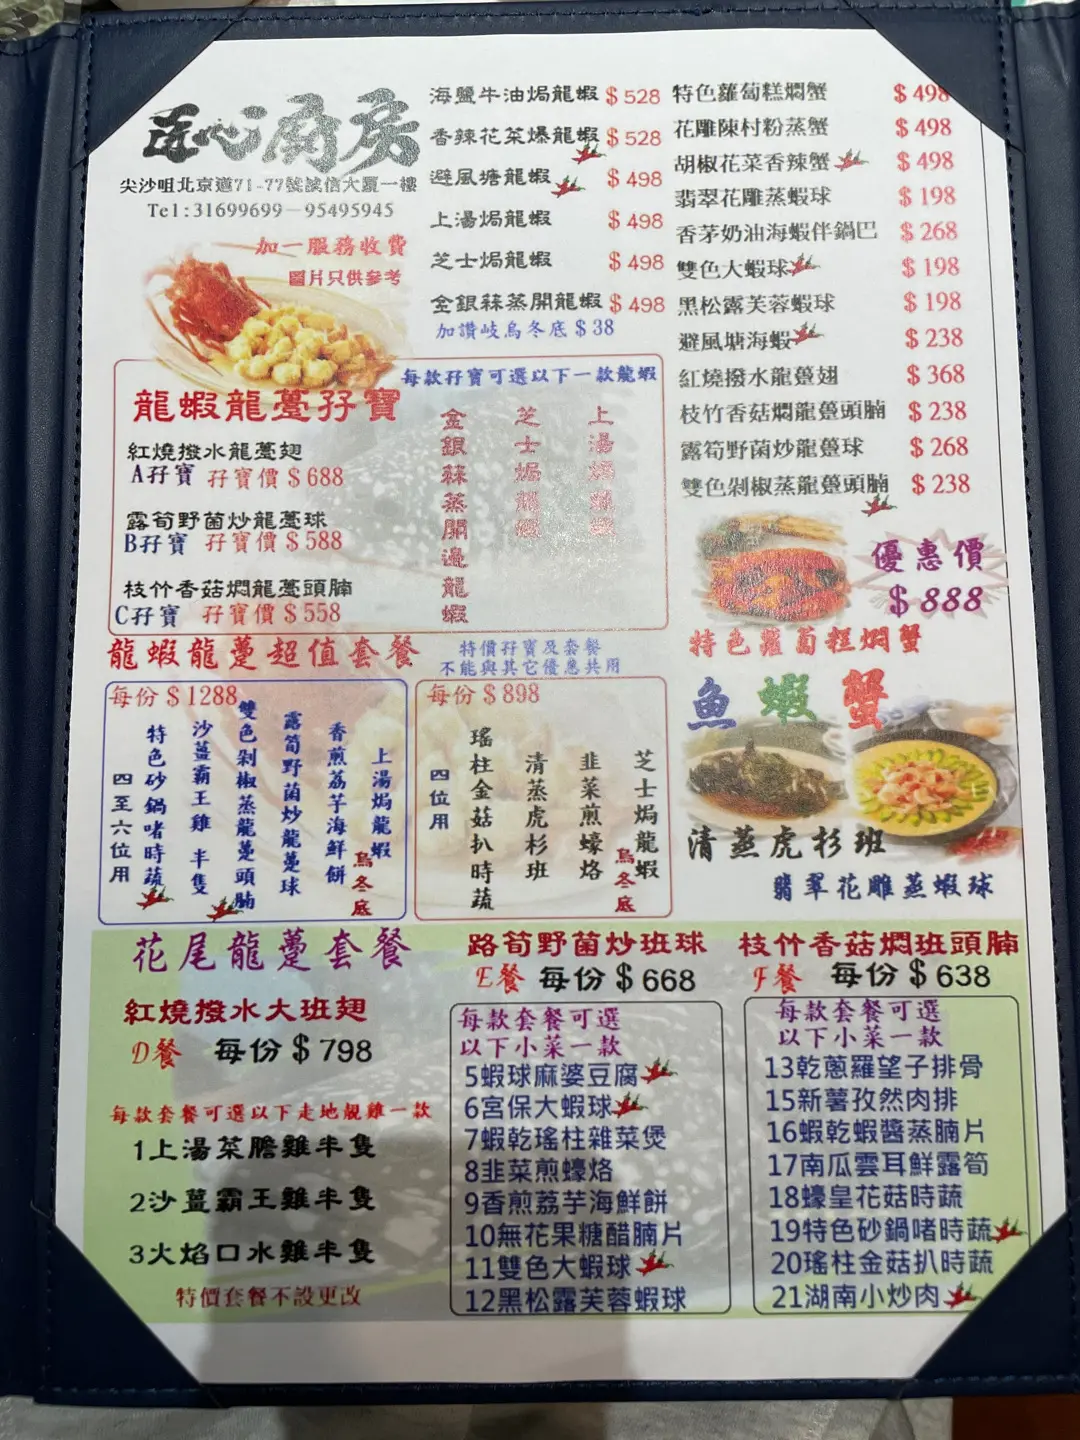 匠心廚房
尖沙咀北京道71-77號誠信大厦一樓
Tel:31699699-95495945
加一服務收費
圖片只供參考
海鹽牛油焗龍蝦 $528
香辣花菜爆龍蝦 $528
避風塘龍蝦 $498
上湯焗龍蝦 $498
芝士焗龍蝦 $498
金銀蒜蒸開龍蝦 $498
加讚岐烏冬底 $38
特色蘿蔔糕燜蟹 $498
花雕陳村粉蒸蟹 $498
胡椒花菜香辣蟹 $498
翡翠花雕蒸蝦球 $198
香茅奶油海蝦伴鍋巴 $268
雙色大蝦球 $198
黑松露芙蓉蝦球 $198
避風塘海蝦 $238
紅燒撥水龍躉翅 $368
枝竹香菇燜龍躉頭腩 $238
露筍野菌炒龍躉球 $268
雙色剁椒蒸龍躉頭腩 $238
龍蝦龍躉孖寶
每款孖寶可選以下一款龍蝦
紅燒撥水龍躉翅
A孖寶 孖寶價 $688
露筍野菌炒龍躉球
B孖寶 孖寶價 $588
枝竹香菇燜龍躉頭腩
C孖寶 孖寶價 $558
上湯焗龍蝦
芝士焗龍蝦
金銀蒜蒸開邊龍蝦
優惠價
$888
特色蘿蔔糕燜蟹
魚蝦蟹
清蒸虎杉班
翡翠花雕蒸蝦球
龍蝦龍躉超值套餐
特價孖寶及套餐
不能與其它優惠共用
每份 $1288
上湯焗龍蝦 烏冬底
香煎荔芋海鮮餅
露筍野菌炒龍躉球
雙色剁椒蒸龍躉頭腩
沙薑霸王雞 半隻
特色砂鍋啫時蔬
四至六位用
每份 $898
芝士焗龍蝦 烏冬底
韭菜煎蠔烙
清蒸虎杉班
瑤柱金菇扒時蔬
四位用
花尾龍躉套餐
紅燒撥水大班翅
D餐 每份 $798
每款套餐可選以下走地靚雞一款
1上湯菜膽雞半隻
2沙薑霸王雞半隻
3火焰口水雞半隻
特價套餐不設更改
路筍野菌炒班球
E餐 每份 $668
每款套餐可選
以下小菜一款
5蝦球麻婆豆腐
6宮保大蝦球
7蝦乾瑤柱雜菜煲
8韭菜煎蠔烙
9香煎荔芋海鮮餅
10無花果糖醋腩片
11雙色大蝦球
12黑松露芙蓉蝦球
枝竹香菇燜班頭腩
F餐 每份 $638
每款套餐可選
以下小菜一款
13乾蔥羅望子排骨
15新薯孜然肉排
16蝦乾蝦醬蒸腩片
17南瓜雲耳鮮露筍
18蠔皇花菇時蔬
19特色砂鍋啫時蔬
20瑤柱金菇扒時蔬
21湖南小炒肉